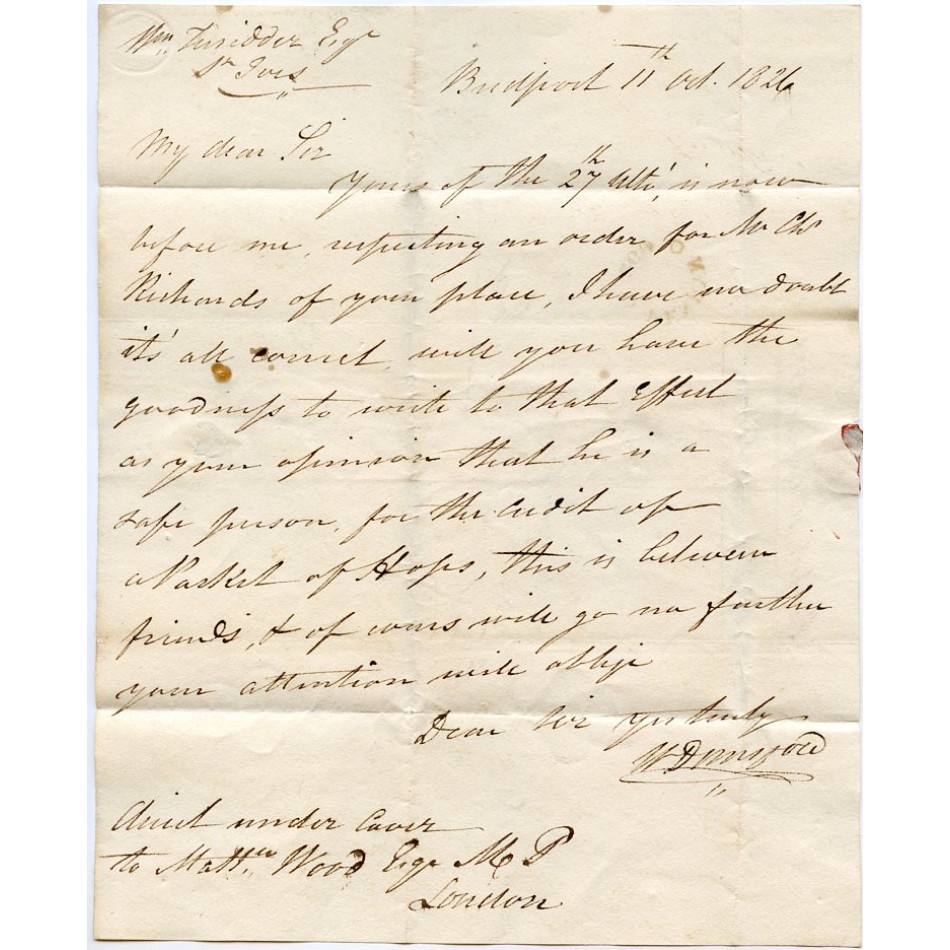 Wm. Tresidder Esqr
St Ives
Bridport 11th Oct. 1826
My dear Sir
Yours of the 27th Ulto, is now
before me, respecting an order for Mr Chs
Richards of your place, I have no doubt
it's all correct, will you have the
goodness to write to that Effect
as your opinion that he is a
safe person, for the Credit of
a Pocket of Hops, this is between
friends, & of cours will go no further
your attention will oblige
Dear Sir yrs truly
direct under Cover
to Matthw Wood Esqr M P
London